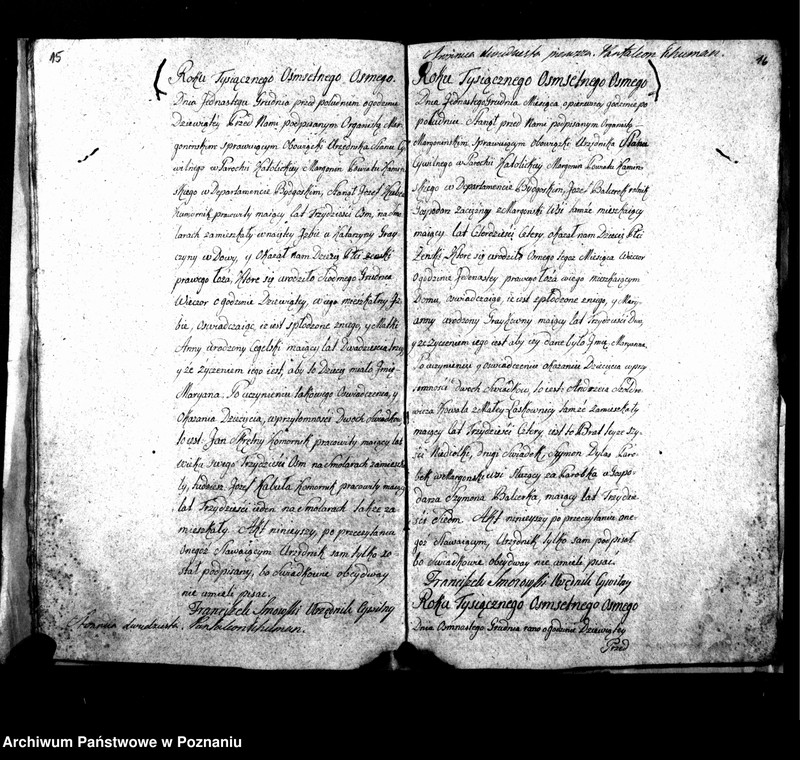 15
Roku Tysiącznego Osmsetnego Osmego.
Dnia Jednastego Grudnia przed południem o godzinie
Dziewiątey Przed Nami podpisanym Organistą Mar-
goninskim sprawuiącym Obowiązki Urzędnika Stanu Cy-
wilnego w Parochii Katolickiey Margonin Powiatu Kamin-
skiego w Departamencie Bydgoskim, Stanął Jozef
Komornik pracowity maiący lat Trzydzieści Osm, na Smo-
larach zamieszkały w naiętey Izbie u Katarzyny Gray-
czyny Wdowy, y Okazał nam Dziecię Płci żenski
prawego łoża, Ktore się urodziło Siodmego Grudnia
Wieczor o godzinie Dziewiątey, w iego mieszkalny Iz-
bie, Oswiadczaiąc iż iest spłodzone z niego, y Matki
Anny urodzony Cegelski maiący lat Dwadzieścia trzy
y że życzeniem iego iest, aby to Dziecię miało Jmię
Maryana. Po uczynieniu takowego Oswiadczenia, y
Okazania Dziecięcia, w przytomności Dwoch Swiadkow
to iest: Jan Skrętny Komornik pracowity maiący lat
wieku swego Trzydzieści Osm na Smolarach zamieszka-
ły, tudzież Jozef Kabuła Komornik pracowity maiący
lat Trzydzieści ieden na Smolarach także za-
mieszkały. Akt ninieyszy, po przeczytaniu
onegoż Stawaiącym Urzędnik sam tylko zo-
stał podpisany, bo Swiadkowie obeydway
nie umieli pisać.
Franciszek Smorowski Urzędnik Cywilny
Stronica dwudziesta. Pantaleon Schuman.
Stronica dwudziesta pierwsza Pantaleon Schuman.
16
Roku Tysiącznego Osmsetnego Osmego
Dnia Jednastego Grudnia Miesiąca o pierwszey godzinie po
południu Stanął przed Nami podpisanym Organistą
Margoninskim sprawuiącym Obowiązki Urzędnika Stanu
Cywilnego w Parochii Katolickiey Margonin Powiatu Kamin-
skiego w Departamencie Bydgoskim, Jozef Balcerek rolnik
Gospodarz zaciężny z Margonski Wsi tamże mieszkaiący
maiący lat Czterdzieści Cztery, okazał nam Dziecię Płci
Żenski, Ktore się urodziło Osmego tegoż Miesiąca Wieczor
o godzinie Jednastey prawego łoża w iego mieszkaiącym
Domu, oswiadczaiąc, iż iest spłodzone z niego, y Mary-
anny urodzony Graykowny maiący lat Trzydzieści Dwa,
y że życzeniem iego iest aby iey dane było Jmię Maryanna.
Po uczynieniu y oswiadczeniu okazaniu Dziecięcia w przy-
tomności Dwoch Swiadkow, to iest: Andrzeia
Kowala z Małey Laskownicy tamże zamieszkały
maiący lat Trzydzieści Cztery iest to Brat
Drugi Swiadek, Szymon Dylas
w Margonski wsi Służący za Parobka u Gospo-
darza Szymona Balcerka, maiący lat Trzydzie-
ści Siedm. Akt ninieyszy po przeczytaniu one-
goż Stawaiącym, Urzędnik tylko sam podpisał
bo Swiadkowie obeydway nie umieli pisać.
Franciszek Smorowski Urzędnik Cywilny
Roku Tysiącznego Osmsetnego Osmego
Dnia Osmnastego Grudnia rano o godzinie Dziewiątey
Przed
Archiwum Państwowe w Poznaniu